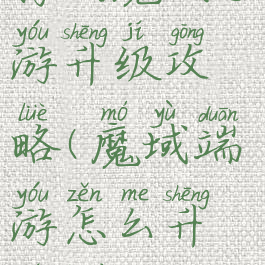 yóu shēng jí gōng
游升级攻
lüè mó yù duān
略(魔域端
yóu zěn me shēng
游怎么升